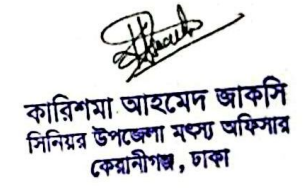 কারিশমা আহমেদ জাকসি
সিনিয়র উপজেলা মৎস্য অফিসার
কেরানীগঞ্জ, ঢাকা